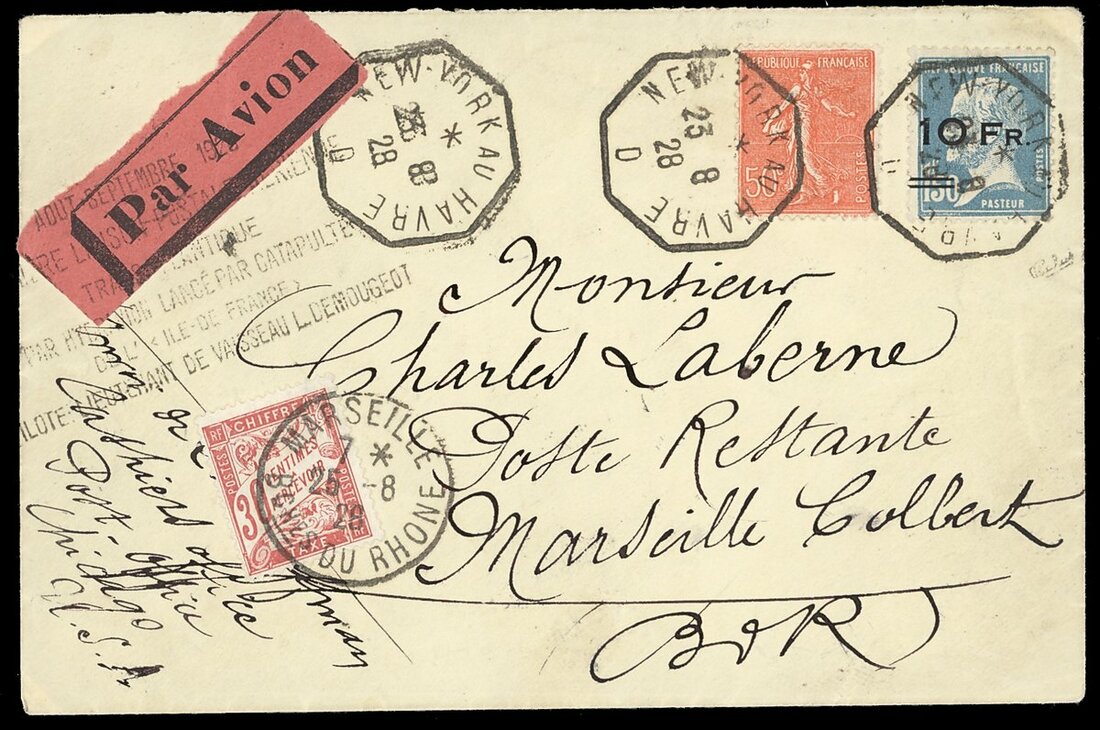 Par Avion
NEW-YORK AU HAVRE
*
23 8
28
D
NEW-YORK AU HAVRE
*
23 8
28
D
RÉPUBLIQUE FRANÇAISE
POSTES
50
NEW-YORK
*
8
RÉPUBLIQUE FRANÇAISE
10 FR.
1F50
POSTES
PASTEUR
AOUT-SEPTEMBRE
LIAISON POSTALE AERIENNE
TRANSATLANTIQUE
PAR HYDRAVION LANCÉ PAR CATAPULTE
DE L' « ILE-DE FRANCE »
PILOTE LIEUTENANT DE VAISSEAU L. DEMOUGEOT
Monsieur
Charles Laberne
Poste Restante
Marseille Colbert
B d R
RF CHIFFRE
POSTES
30
CENTIMES
À PERCEVOIR
POSTES
TAXE
MARSEILLE
7 *
25 -8
28
DU RHONE
Cashiers office
Post-office
Chicago
U.S.A